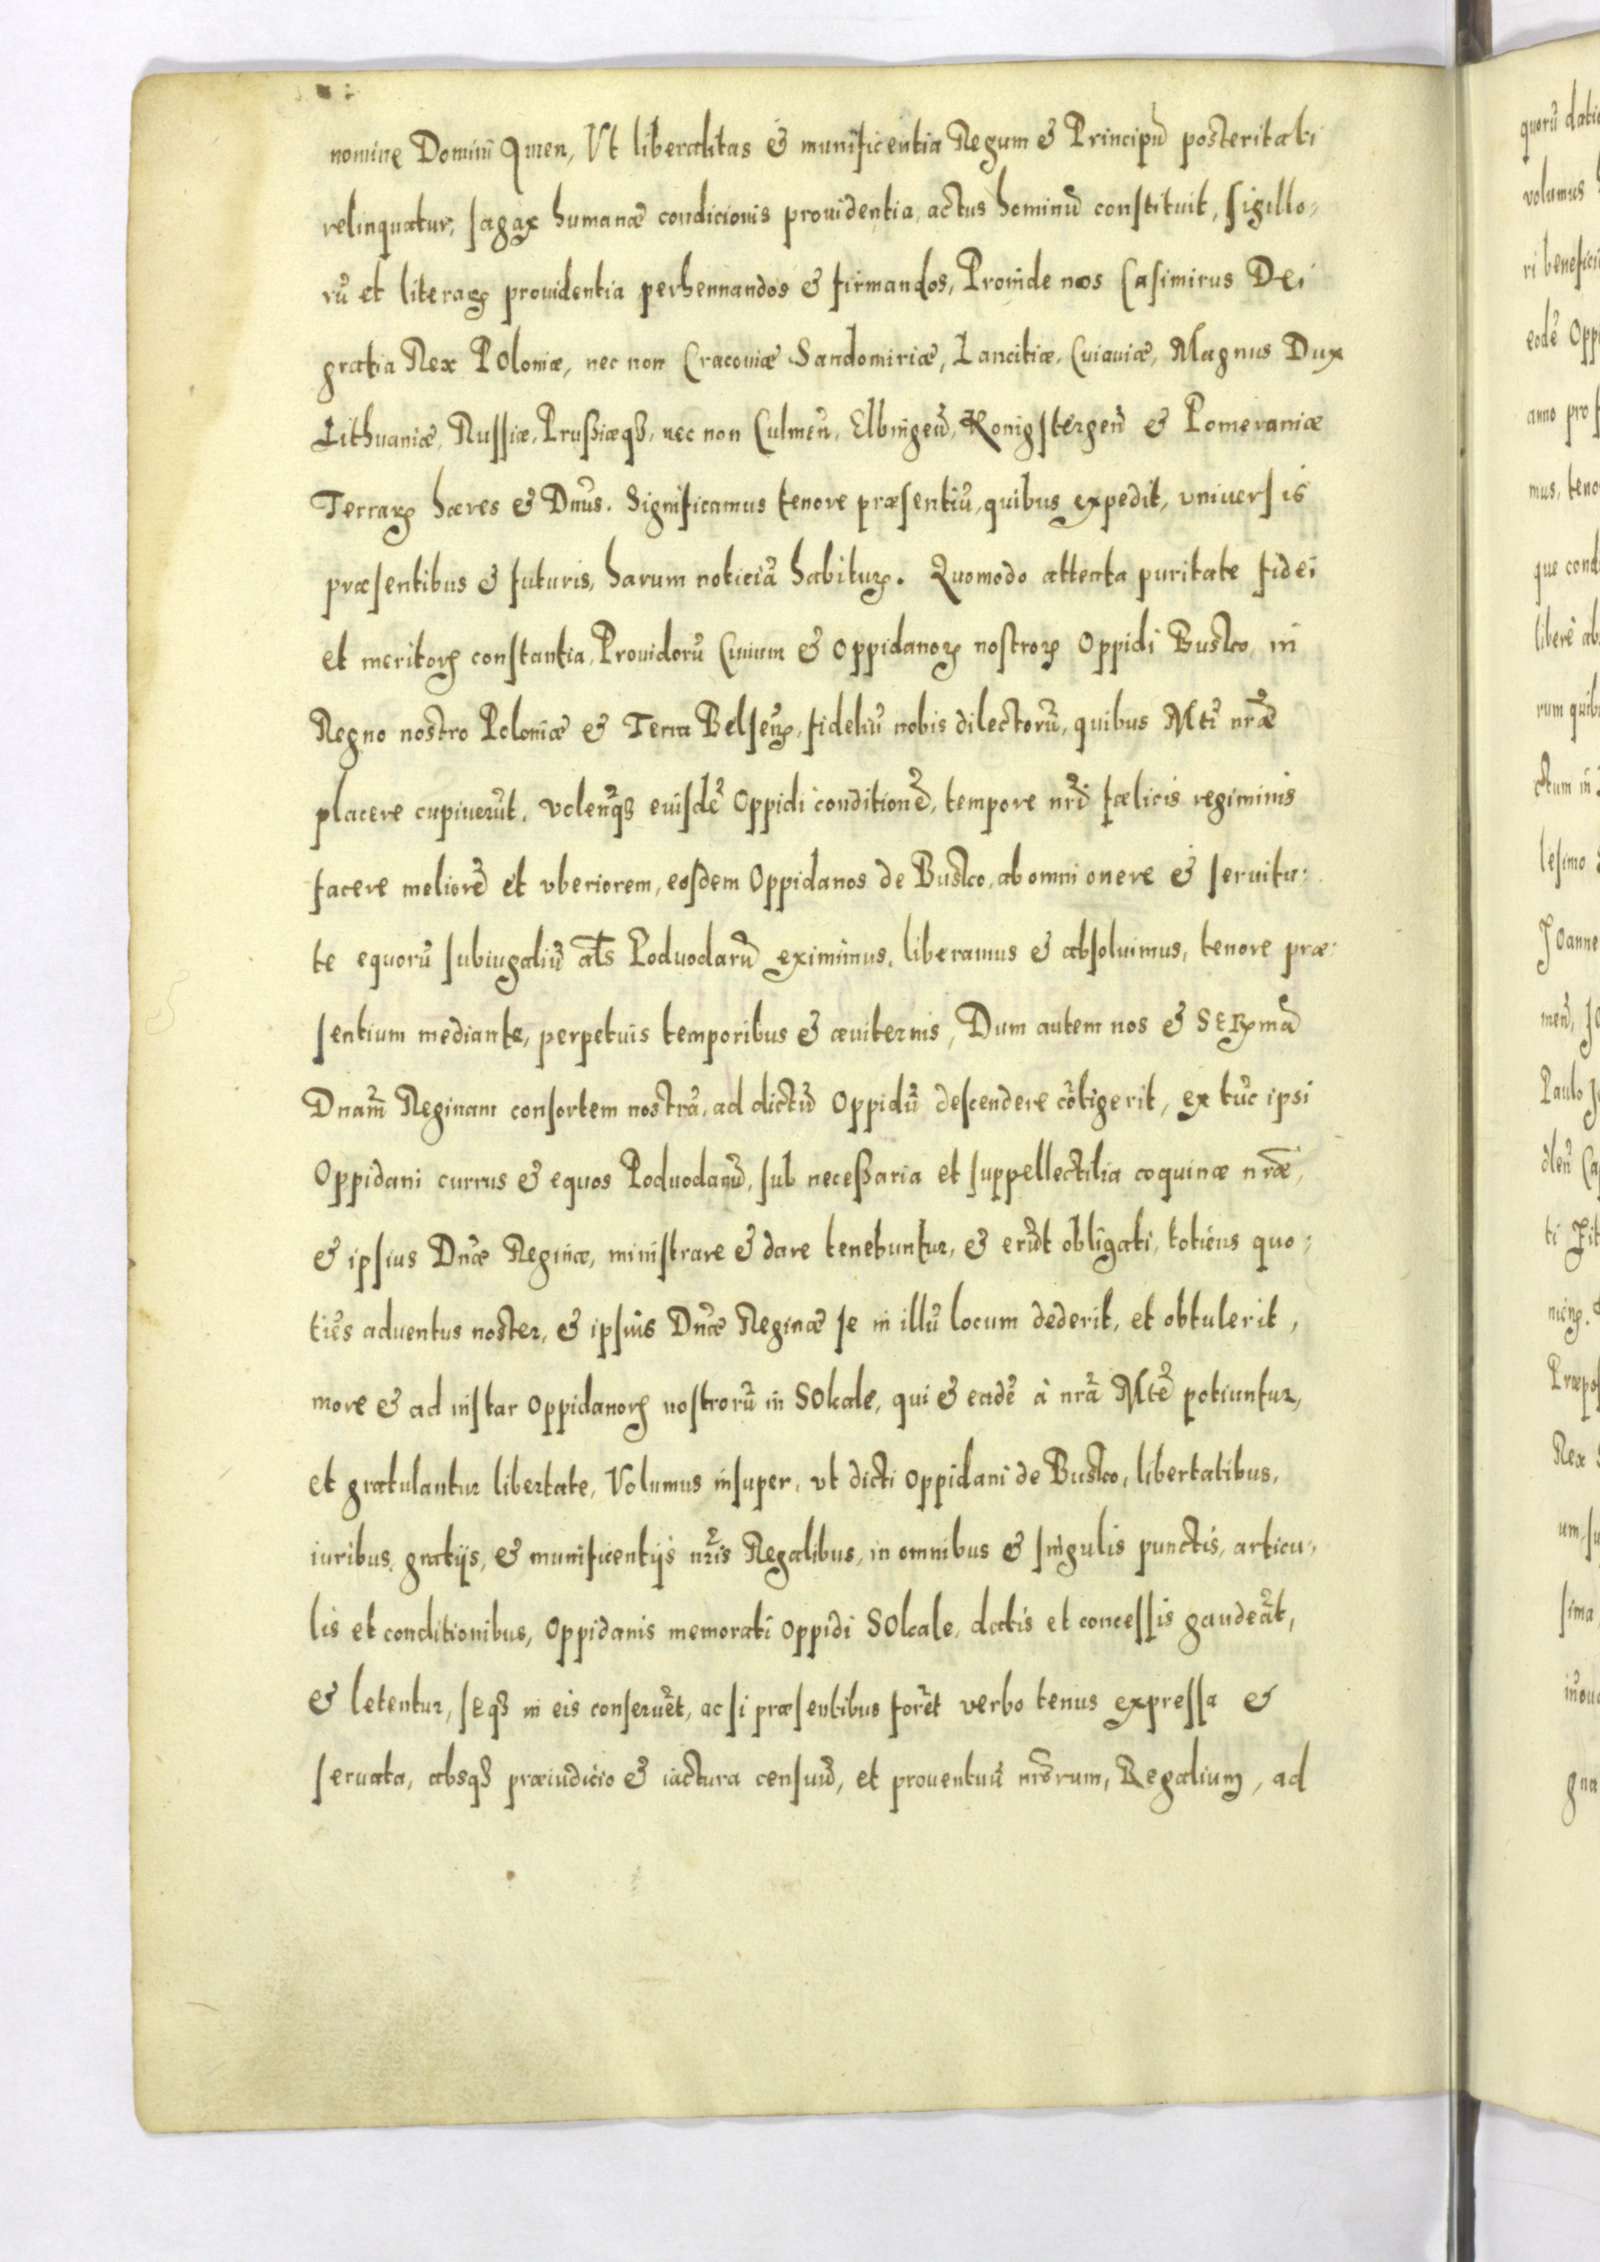 nomine Domini Amen, Vt liberalitas & munificentia Regum & Principũ posteritati
relinquatur, sagax humanæ condicionis prouidentia, actus hominũ constituit, sigillo,
rũ et literaꝝ prouidentia perhennandos & firmandos, Proinde nos Casimirus Dei
gratia Rex POloniæ, nec non Cracouiæ Sandomiriæ, Lancitiæ, Cuiauiæ, Magnus Dux
Lithuaniæ, Russiæ, Prußiæqꝫ, nec non Culmeñ, Elbingeñ, Konigstergeñ & Pomeraniæ
Terraꝝ hæres & Dñus. Significamus tenore præsentiũ, quibus expedit, vniuersis
præsentibus & futuris, harum noticiã habituꝝ. Quomodo attenta puritate fidei
et meritoꝝ constantia, Prouidorũ Ciuium & Oppidanoꝝ nostroꝝ Oppidi Busko, in
Regno nostro Poloniæ & Terra Belseñ, fideliũ nobis dilectorũ, quibus Mti nr̃æ
placere cupiuerũt, volenťqꝫ eiusdẽ Oppidi conditionẽ, tempore nr̃i fœlicis regiminis
facere meliorẽ et vberiorem, eosdem Oppidanos de Busko, ab omni onere & seruitu:
te equorũ subiugaliũ als̃ Poduodarũ eximimus, liberamus & absoluimus, tenore præ:
sentium mediante, perpetuis temporibus & æuiternis, Dum autem nos & SERxmã
Dnam̃ Reginam consortem nostrã, ad dictũ Oppidũ descendere cõtigerit, ex tũc ipsi
Oppidani currus & equos Poduodarũ, sub necessaria et suppellectilia coquinæ nr̃æ,
& ipsius Dñæ Reginæ, ministrare & dare tenebuntur, & erũt obligati, totiens quo:
tiẽs aduentus noster, & ipsius Dñæ Reginæ se in illũ locum dederit, et obtulerit,
more & ad instar Oppidanoꝝ nostrorũ in SOkale, qui & eadẽ à nr̃a Mtẽ potiuntur,
et gratulantur libertate, Volumus insuper, vt dicti Oppidani de Busko, libertatibus,
iuribus, gratijs, & munificentijs nr̃is Regalibus, in omnibus & singulis punctis, articu,
lis et conditionibus, Oppidanis memorati Oppidi SOkale, datis et concessis gaudeãt,
& letentur, seqꝫ in eis conseruẽt, ac si præsentibus forẽt verbo tenus expressa &
seruata, absqꝫ præiudicio & iactura censuũ, et prouentuũ nr̃orum, Regalium, ad